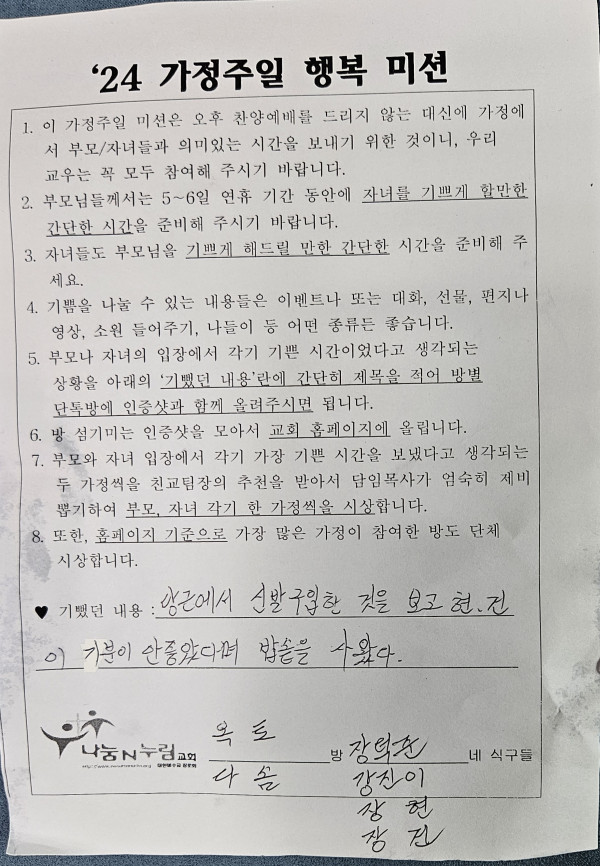 ‘24 가정주일 행복 미션
1. 이 가정주일 미션은 오후 찬양예배를 드리지 않는 대신에 가정에
서 부모/자녀들과 의미있는 시간을 보내기 위한 것이니, 우리
교우는 꼭 모두 참여해 주시기 바랍니다.
2. 부모님들께서는 5~6일 연휴 기간 동안에 자녀를 기쁘게 할만한
간단한 시간을 준비해 주시기 바랍니다.
3. 자녀들도 부모님을 기쁘게 해드릴 만한 간단한 시간을 준비해 주
세요.
4. 기쁨을 나눌 수 있는 내용들은 이벤트나 또는 대화, 선물, 편지나
영상, 소원 들어주기, 나들이 등 어떤 종류든 좋습니다.
5. 부모나 자녀의 입장에서 각기 기쁜 시간이었다고 생각되는
상황을 아래의 ‘기뻤던 내용’란에 간단히 제목을 적어 방별
단톡방에 인증샷과 함께 올려주시면 됩니다.
6. 방 섬기미는 인증샷을 모아서 교회 홈페이지에 올립니다.
7. 부모와 자녀 입장에서 각기 가장 기쁜 시간을 보냈다고 생각되는
두 가정씩을 친교팀장의 추천을 받아서 담임목사가 엄숙히 제비
뽑기하여 부모, 자녀 각기 한 가정씩을 시상합니다.
8. 또한, 홈페이지 기준으로 가장 많은 가정이 참여한 방도 단체
시상합니다.
♥ 기뻤던 내용 : 당근에서 신발구입한 것을 보고 현.진
이 기분이 안좋았다며 밥솥을 사왔다.
나눔N누림교회 옥토 방 장덕훈 네 식구들
다솜 강진이
장 현
장 진